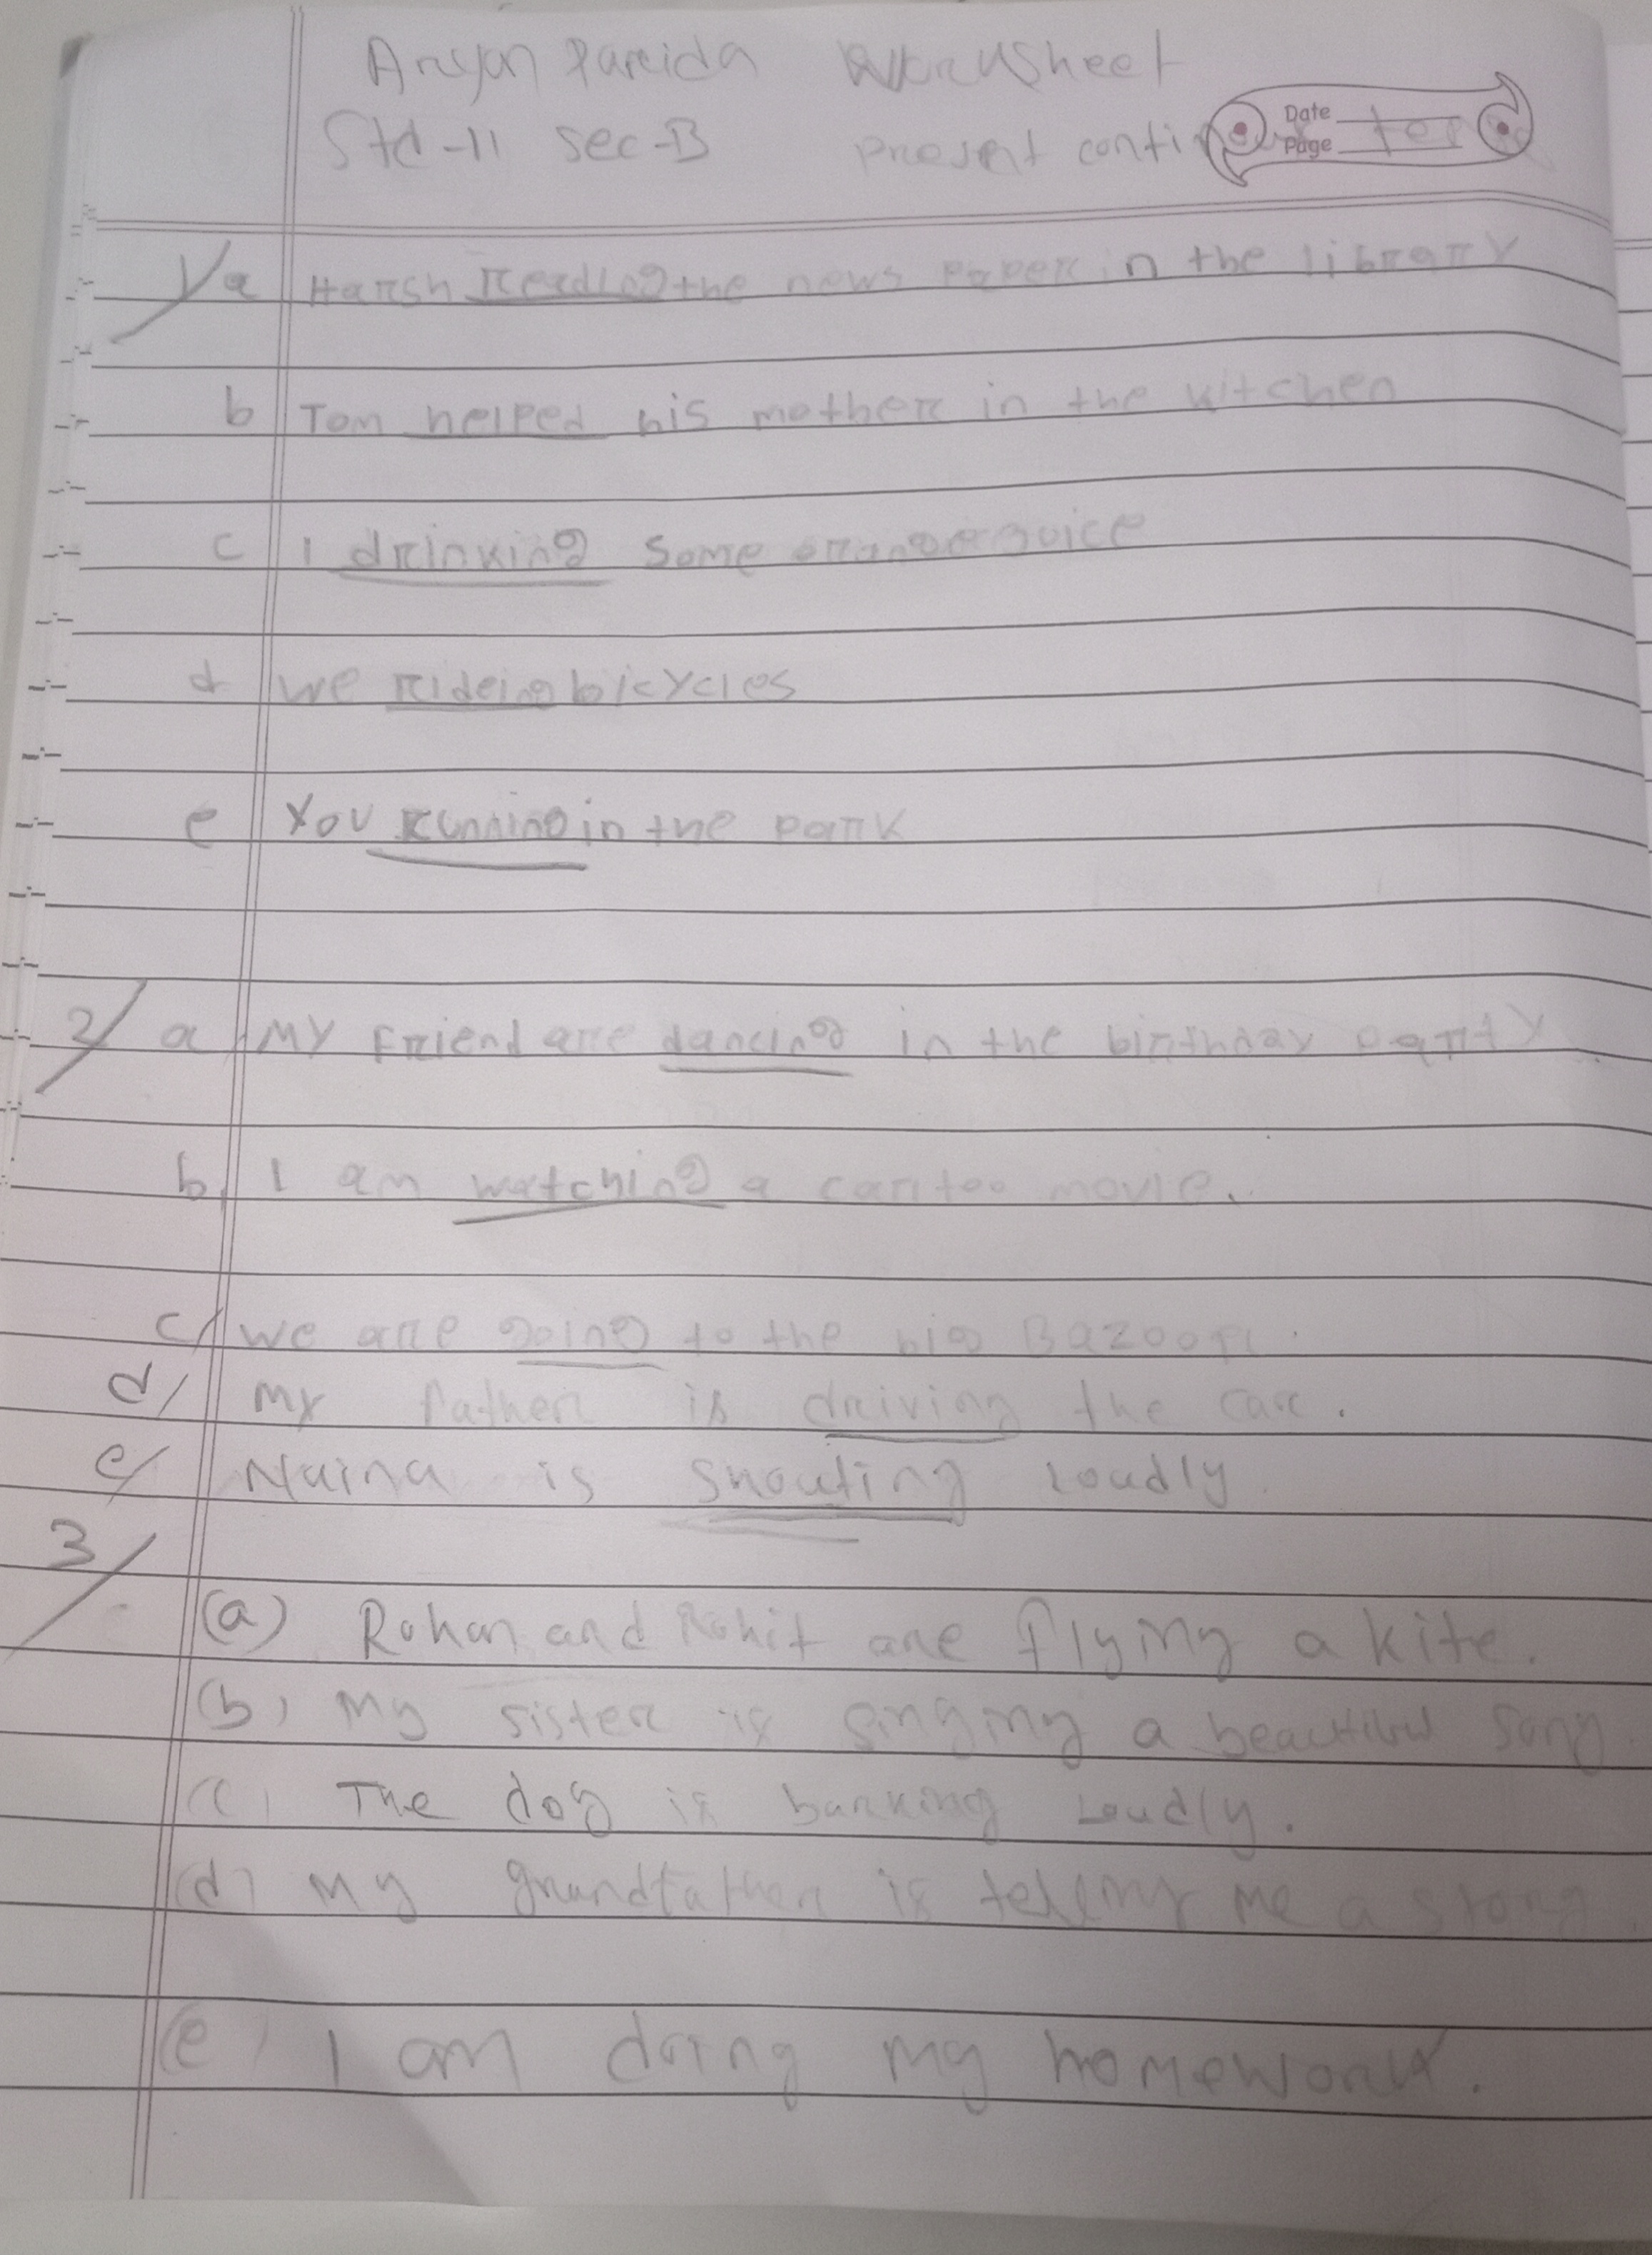 Aryan Parida Worksheet
Std-11 sec-B present conti
Date
Page
1/ a Harsh reading the news paper in the library
b Tom helped his mother in the kitchen
c I drinking some orange juice
d we rideing bicycles
e You running in the park
2/ a My Friend are dancing in the birthday party
b, I am watching a cartoo movie.
c/ we are going to the big Bazoor.
d/ My father is driving the car.
e/ Naina is shouting loudly.
3/
(a) Rohan and Rohit are flying a kite.
(b) My sister is singing a song
(c) The dog is barking Loudly.
(d) My grandfather is telling me a
(e) I am doing my homework.